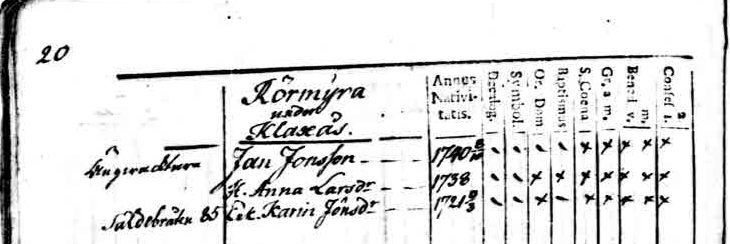 20
Rörmÿra
under
Klaxås.
Annus Nativitatis.
Decalog.
Symbol.
Or. Dom.
Baptismus
S. Coena
Gr. a. m.
Bened. v. m.
Confess. 2 1.
Jan Jonsson - - 1740 - - - - x x x x x
H. Anna Larsdr 1738 - - x x x x x x x
85 Karin Jönsdr - - 1721 - - x - x x x x x